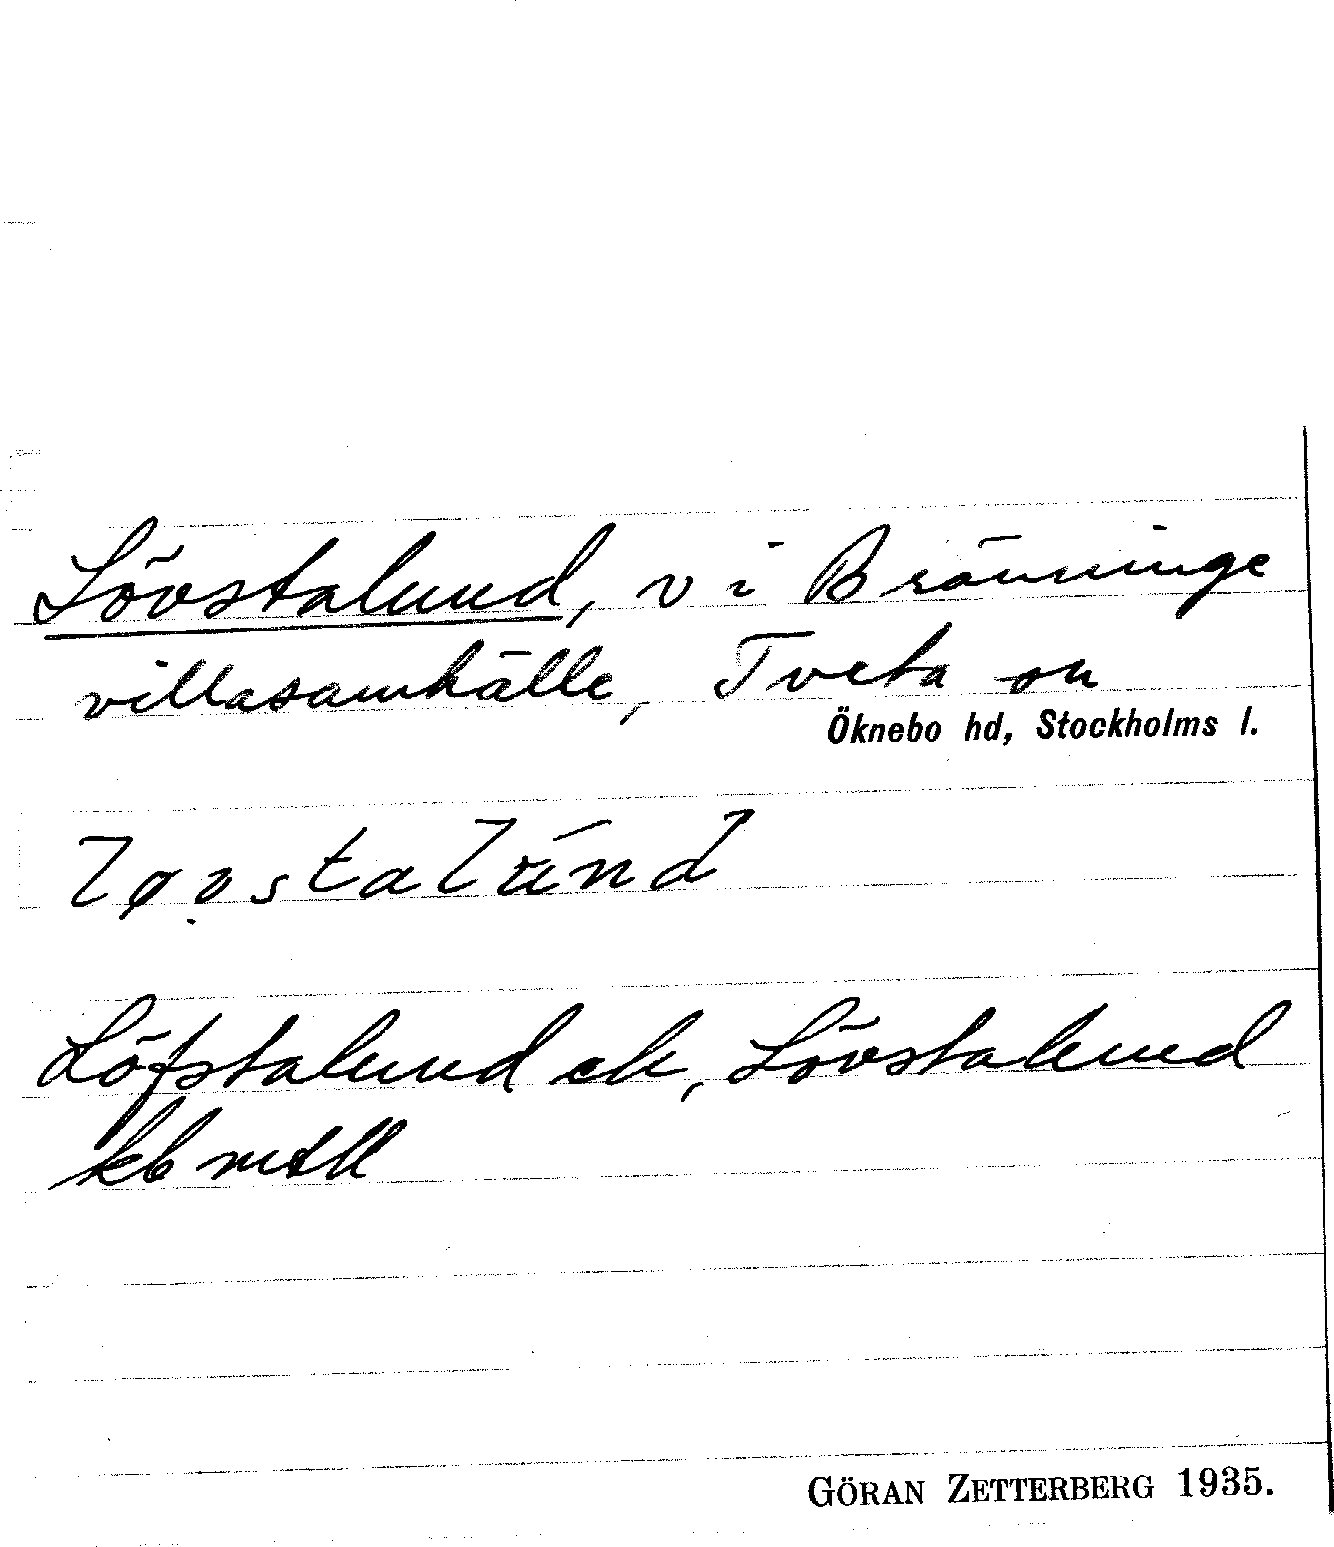 Lövstalund, v i Bränninge
villasamhälle, Tveta sn
Öknebo hd, Stockholms l.
Löfstalund ek, Lövstalund
kb mtll
GÖRAN ZETTERBERG 1935.